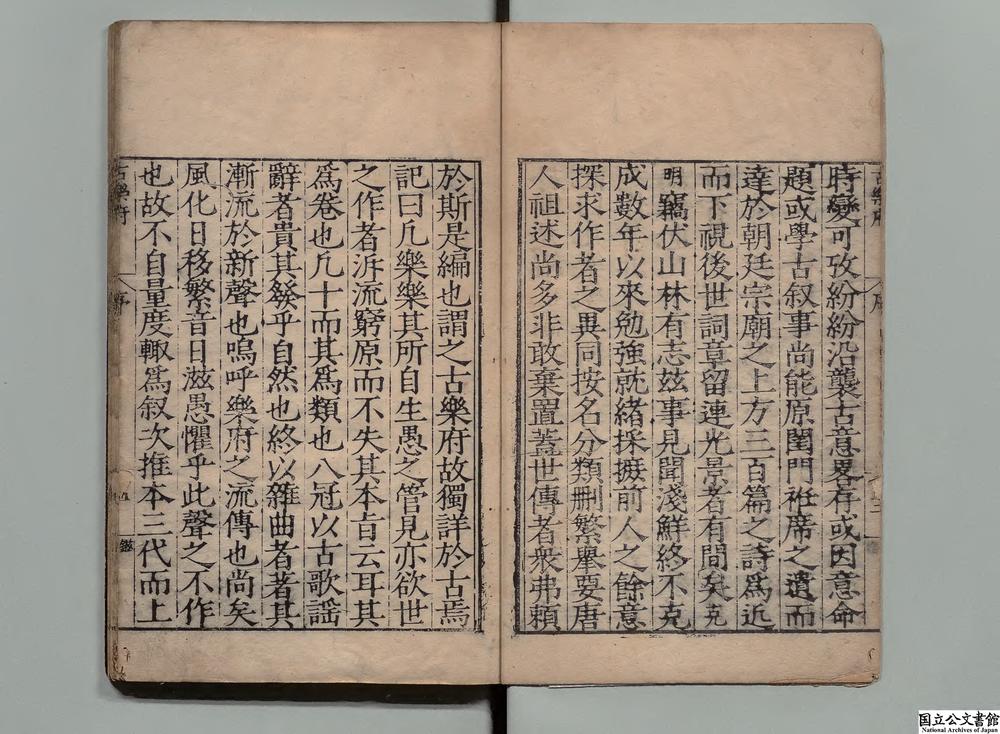 時變可攷紛紛沿襲古意畧存或因意命
題或學古叙事尚能原閨門袵席之遺而
達於朝廷宗廟之上方三百篇之詩爲近
而下視後世詞章留連光景者有間矣克
明竊伏山林有志玆事見聞淺鮮終不克
成數年以來勉強就緒採摭前人之餘意
探求作者之異同按名分類刪繁舉要唐
人祖述尚多非敢棄置蓋世傳者衆弗頼
於斯是編也謂之古樂府故獨詳於古焉
記曰凢樂樂其所自生愚之管見亦欲世
之作者泝流窮原而不失其本旨云耳其
爲卷也凢十而其爲類也八冠以古歌謡
辭者貴其發乎自然也終以雜曲者著其
漸流於新聲也嗚呼樂府之流傳也尚矣
風化日移繁音日滋愚懼乎此聲之不作
也故不自量度輙爲叙次推本三代而上
古樂府
序
国立公文書館
National Archives of Japan